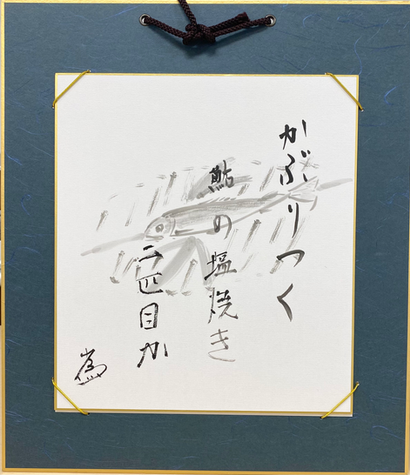 かぶりつく
鮎の塩焼き
二匹目か